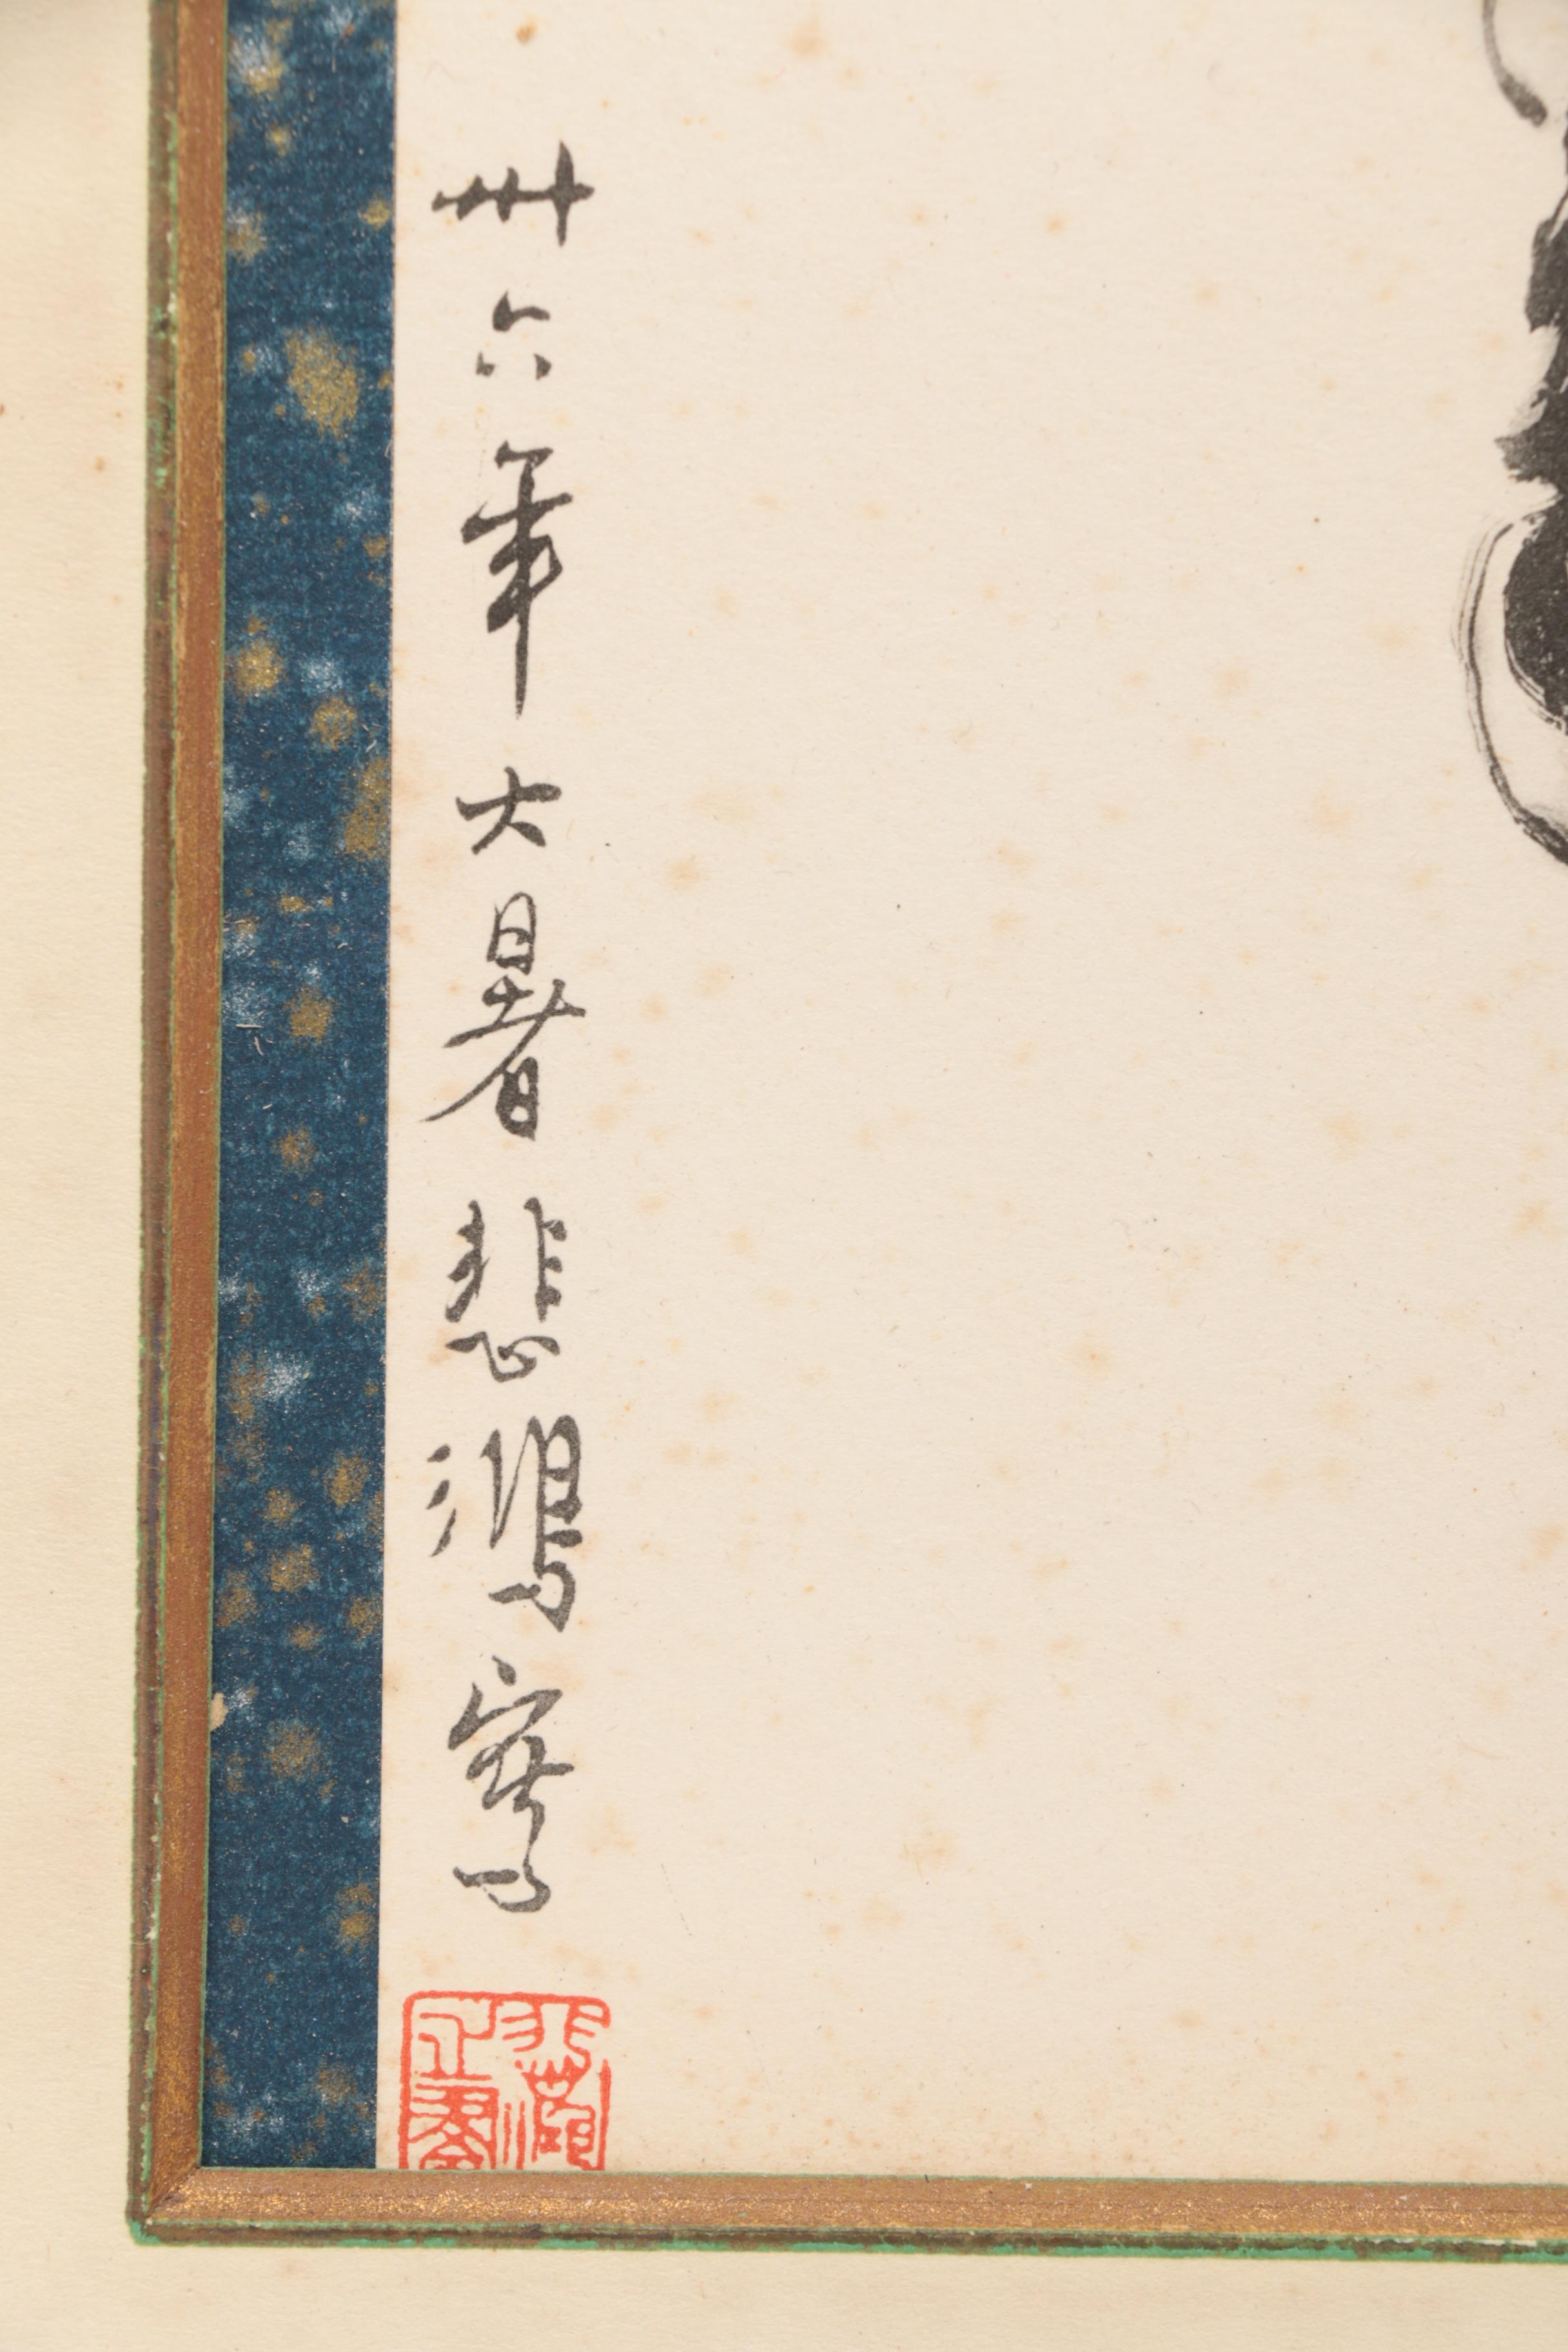 卅六年大暑悲鴻寫